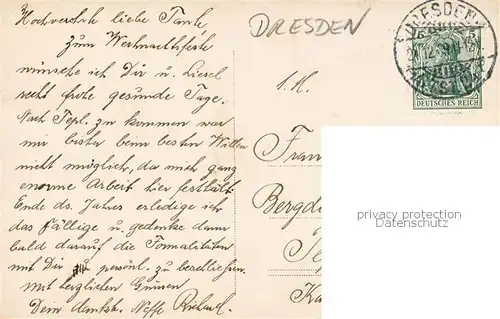 Hochverehrte liebe Tante,
DRESDEN
zum Weihnachtsfeste
wünsche ich Dir u. Liesel
recht frohe gesunde Tage.
Nach Tepl. zu kommen war
mir bisher beim besten Willen
nicht möglich, da mich ganz
enorme Arbeit hier festhält.
Ende ds. Jahres erledige ich
das Fällige u. gedenke dann
bald darauf die Formalitäten
mit Dir persönl. zu beschließen.
Mit herzlichen Grüssen
Dein dankb. Neffe Richard.
DRESDEN
DEUTSCHES REICH
5
S. H.
Frau
Bergdi
privacy protection
watermark